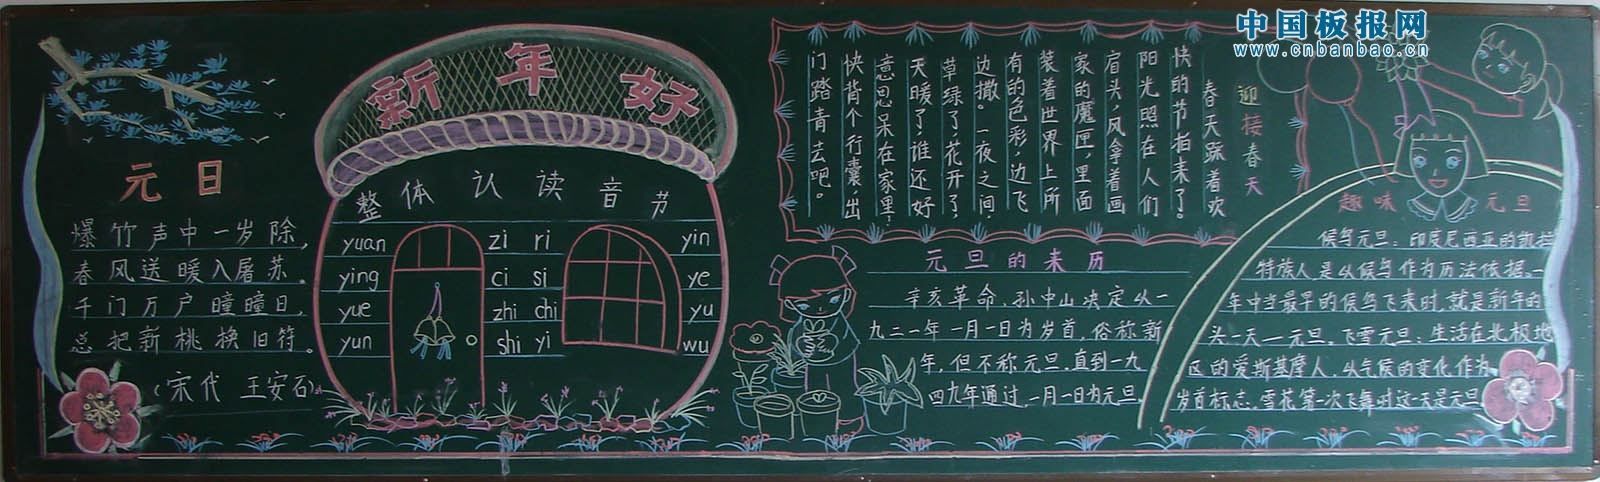 中国板报网
www.cnbanbao.cn
新年好
元日
爆竹声中一岁除,
春风送暖入屠苏。
千门万户曈曈日,
总把新桃换旧符。
(宋代 王安石)
整体认读音节
yuan zi ri yin
ying ci si ye
yue zhi chi yu
yun shi yi wu
迎接春天
春天踩着欢
快的节拍来了。
阳光照在人们
眉头,风拿着画
家的魔匣,里面
装着世界上所
有的色彩,边飞
边撒。一夜之间,
草绿了,花开了,
天暖了,谁还好
意思呆在家里,
快背个行囊,出
门踏青去吧。
元旦的来历
辛亥革命,孙中山决定从一
九二一年一月一日为岁首,俗称新
年,但不称元旦,直到一九
四九年通过,一月一日为元旦。
趣味元旦
候鸟元旦:印度尼西亚的凯拉
特族人是以候鸟作为历法依据,一
年中当最早的候鸟飞来时,就是新年的
头一天—元旦。飞雪元旦:生活在北极地
区的爱斯基摩人,从气候的变化作为
岁首标志,雪花第一次飞舞时这一天是元旦